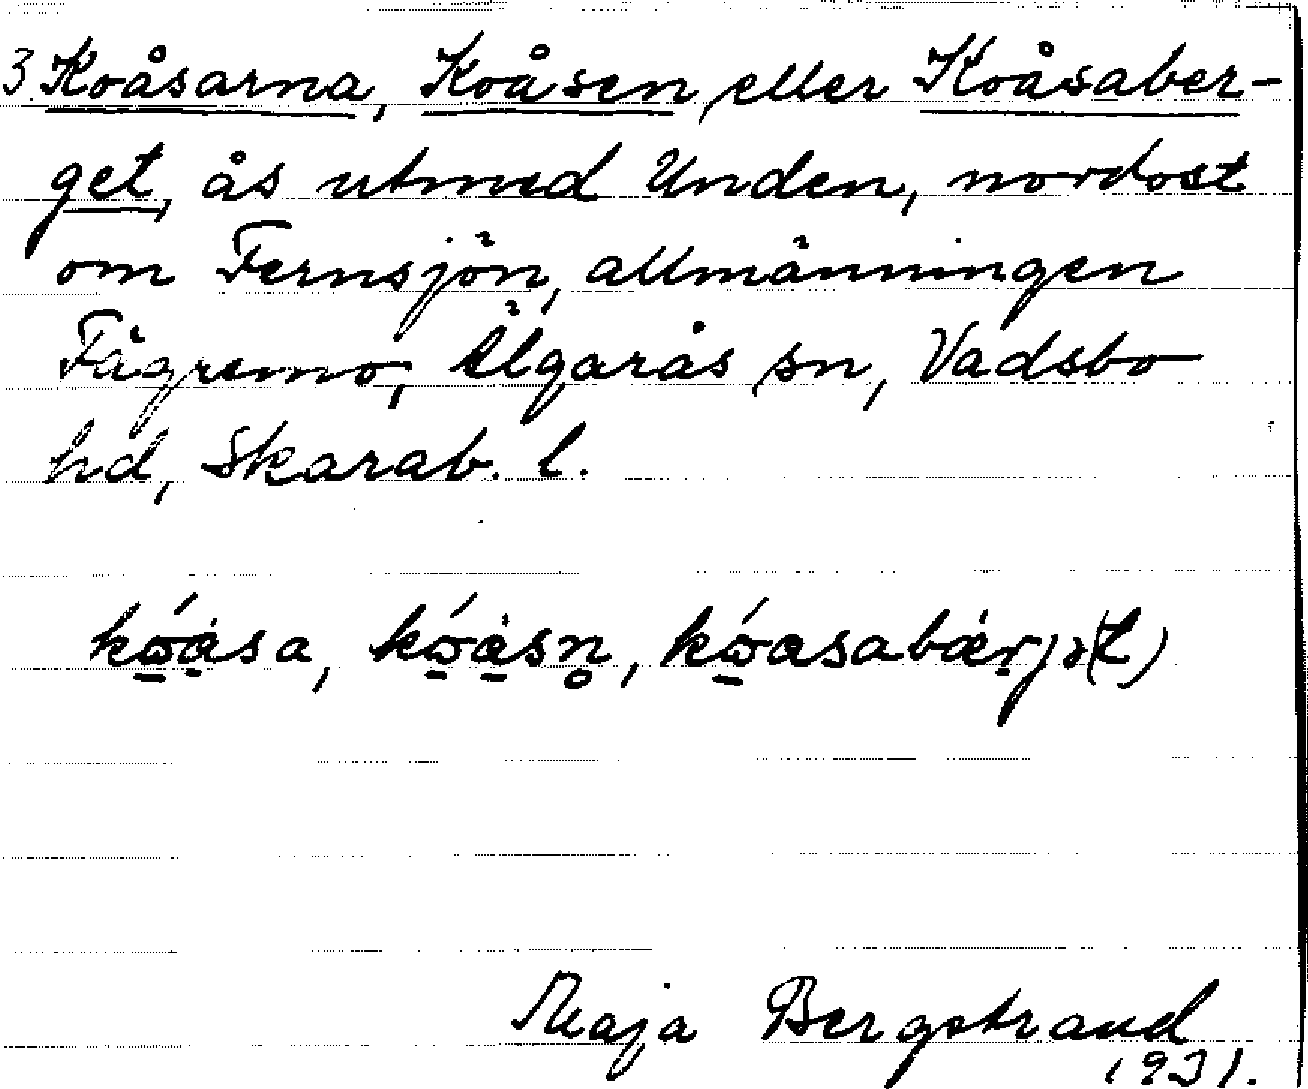 3. Koåsarna, Koåsen, eller Koåsaber-
get, ås utmed Unden, nordost
om Fernsjön, allmänningen
Fägremo, Älgarås sn, Vadsbo
hd, Skarab. l.
Maja Bergstrand
1931.